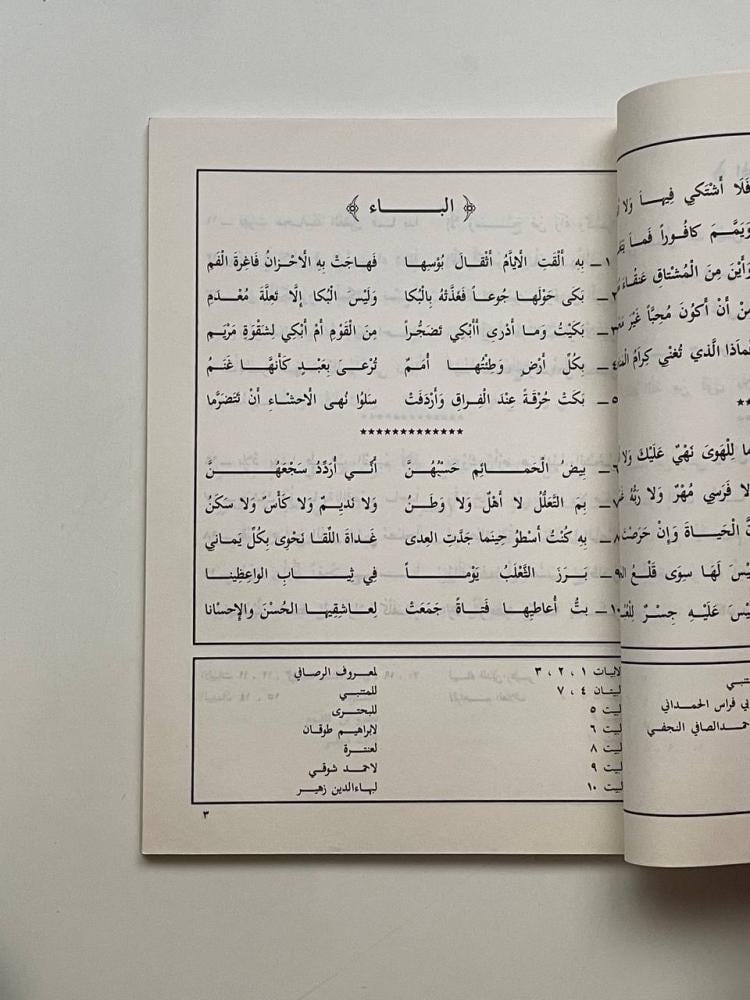 ﴿ البـــاء ﴾
١ ـ بِهِ أَلْقَتِ الْاَيَّامُ أَثْقَالَ بُؤْسِهـا فَهَاجَتْ بِهِ الْاَحْزَانُ فَاغِرَةَ الْفَمِ
٢ـ بَكَى حَوْلَهـا جُوعـاً فَغَذَّتْهُ بِالْبُكا وَلَيْسَ الْبُكا إِلَّا تَعِلَّةَ مُعْدَمِ
٣ـ بَكَيْتُ وَمـا أَدْرِي أَأَبْكِي تَضَجُّراً مِنَ الْقَوْمِ أَمْ أَبْكِي لِشَقْوَةِ مَرْيَمِ
٤ـ بِكُلِّ أَرْضٍ وَطِئْتُهـا أُمَـمٌ تُرْعـى بِعَبْدٍ كَأَنَّهـا غَنَـمُ
٥ ـ بَكَتْ حُرْقَةً عِنْدَ الْفِراقِ وَأَرْدَفَتْ سَلَوْا نُهـى الْاَحْشاءِ أَنْ تَتَضَرَّما
*************
٦ـ بِيضُ الْحَمـائِـمِ حَسْبُهُـنَّ أَنِّـي أُرَدِّدُ سَجْعَهُـنَّ
٧ـ بِمَ التَّعَلُّلُ لا أَهْلٌ وَلا وَطَـنٌ وَلا نَديـمٌ وَلا كَأْسٌ وَلا سَكَنُ
٨ـ بِهِ كُنْتُ أَسْطُو حِينَما جَدَّتِ الْعِدى غَـداةَ اللِّقـا نَحْوِى بِكُلِّ يَمـاني
٩ـ بَـرَزَ الثَّعْلَبُ يَوْمـاً فِي ثِيـابِ الْواعِظِينـا
١٠ـ بِتُّ أُعاطِيهـا فَتـاةً جَمَعَتْ لِعاشِقِيهـا الْحُسْنَ والْإِحْسانا
لايات ١ ، ٢ ، ٣ لمعروف الرصافي
ليتان ٤ ، ٧ للمتنبي
ليت ٥ للبحترى
ليت ٦ لابراهيم طوقان
ليت ٨ لعنترة
ليت ٩ لاحمد شوقي
ليت ١٠ لبهاءالدين زهير
٣
فَلَا أَشْتَكي فِيهـا وَلا
وَيَمَّمَ كافُوراً فَمـا
وَأَيْنَ مِنَ الْمُشْتاقِ عَنْقاءُ
مِنْ أَنْ أَكُونَ مُحِبّاً غَيْرَ
فَماذا الَّذي تُغْني كِرامُ
**
ما لِلْهَوَى نَهْيٌ عَلَيْكَ وَلا
لا فَرَسي مُهْرٌ وَلا رَبُّهُ
نَّ الْحَياةَ وَإِنْ حَرَصْتَ
يْسَ لَها سِوَى قَلْعُ
يْسَ عَلَيْهِ جِسْرٌ
متنبي
بي فراس الحمداني
حمدالصافي النجفي